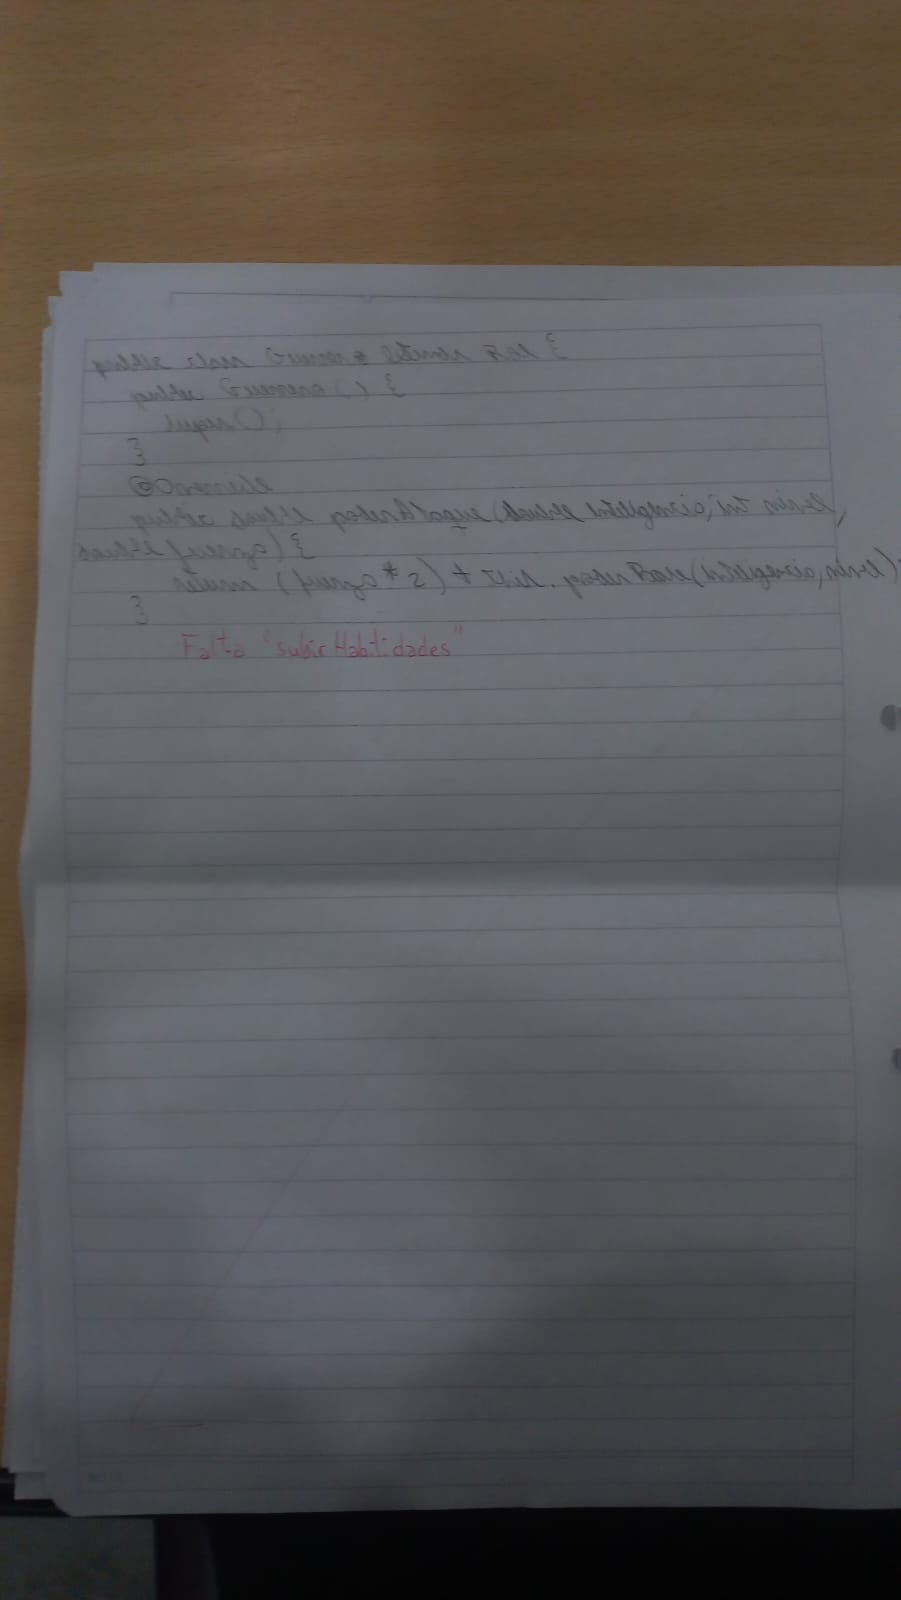 public class Guerrero extends Rol {
public Guerrero() {
super();
}
@Override
public double poderAtaque(double inteligencia, int nivel,
double fuerza) {
return (fuerza * 2) + this.poderBase(inteligencia, nivel);
}
Falta "subirHabilidades"